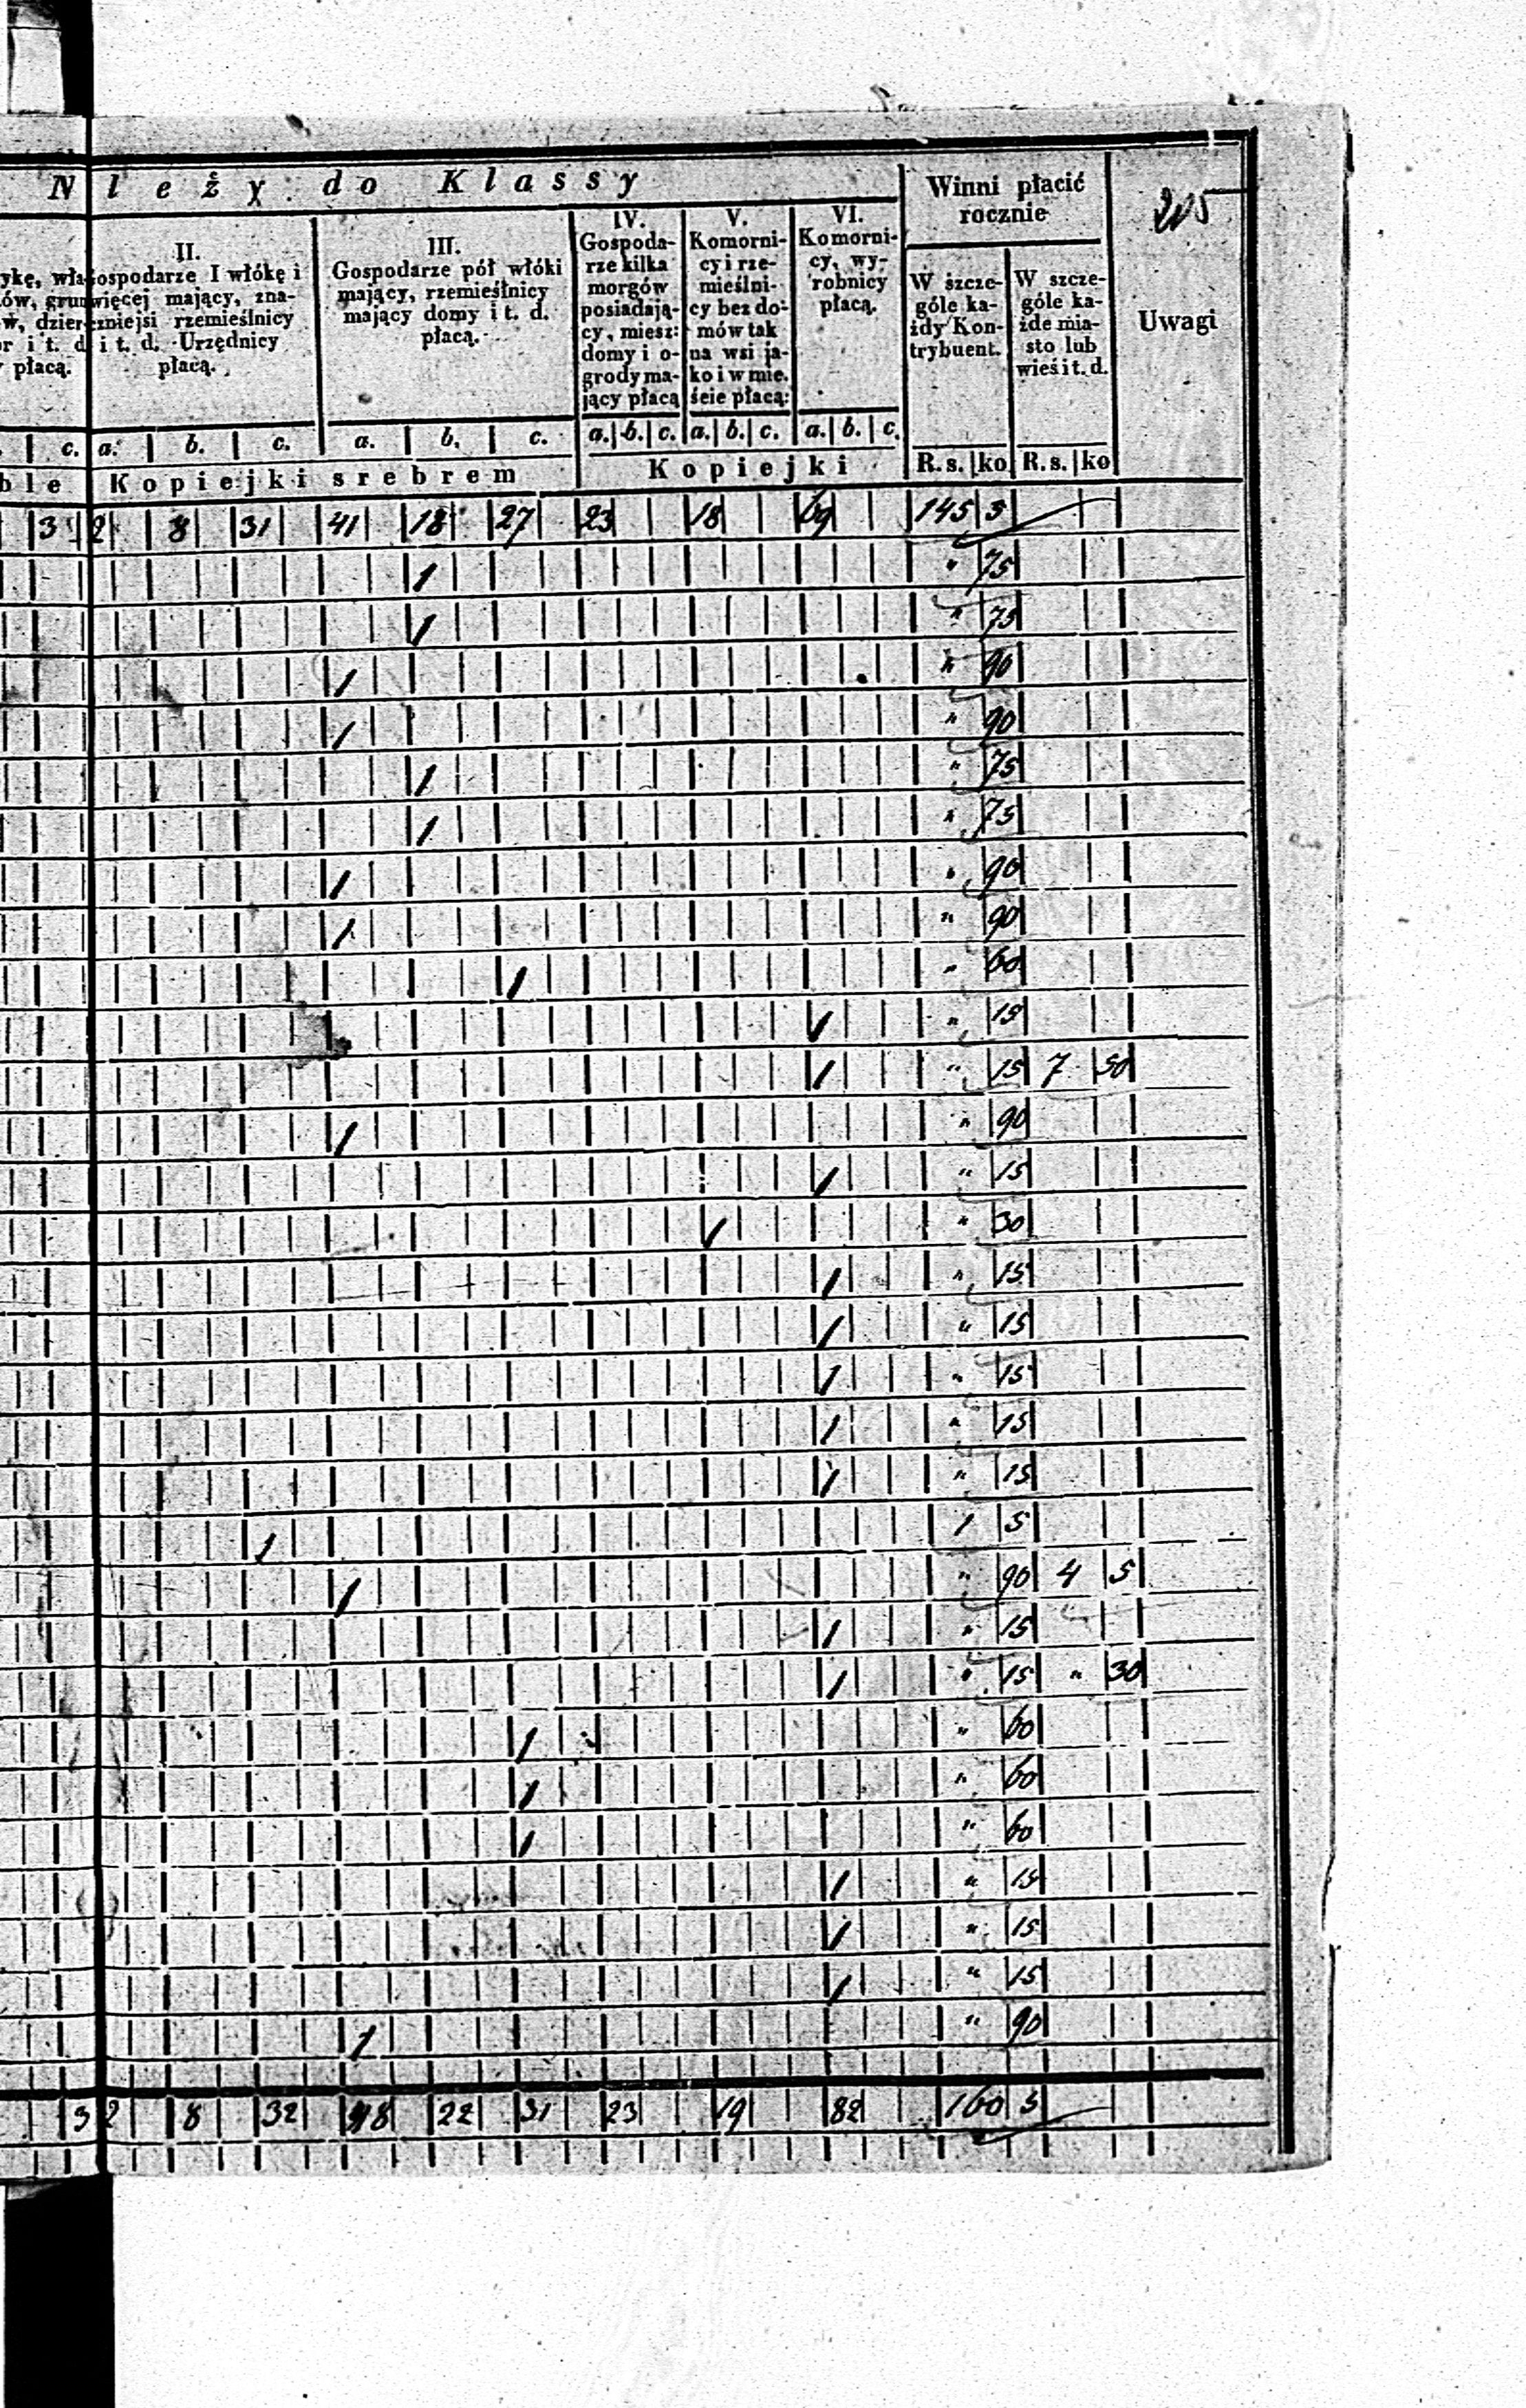 N leży do Klassy
Winni płacić rocznie
205
ykę, wła
ów, grun
w, dzier
or i t. d
płacą.
II.
ospodarze I włókę i
więcej mający, zna-
czniejsi rzemieślnicy
i t. d. Urzędnicy
płacą.
III.
Gospodarze pół włóki
mający, rzemieślnicy
mający domy i t. d.
płacą.
IV.
Gospoda-
rze kilka
morgów
posiadają-
cy, miesz:
domy i o-
grody ma-
jący płacą
V.
Komorni-
cy i rze-
mieślni-
cy bez do-
mów tak
na wsi ja-
ko i w mie.
ście płacą:
VI.
Komorni-
cy, wy-
robnicy
płacą.
W szcze-
góle ka-
żdy Kon-
trybuent.
W szcze-
góle ka-
żde mia-
sto lub
wieś i t. d.
Uwagi
c. a. b. c. a. b. c. a. b. c. a. b. c. a. b. c.
ble Kopiejki srebrem Kopiejki R. s. ko R. s. ko
3 2 8 31 41 18 27 23 18 69 145 5
1 " 75
1 " 75
1 " 90
1 " 90
1 " 75
1 " 75
1 " 90
1 " 90
1 " 60
1 " 15
1 " 15 7 50
1 " 90
1 " 15
1 " 30
1 " 15
1 " 15
1 " 15
1 " 15
1 " 15
1 1 5
1 " 90 4 5
1 " 15
1 " 15 " 30
1 " 60
1 " 60
1 " 60
1 " 15
1 " 15
1 " 15
1 " 90
3 2 8 32 48 22 31 23 19 82 160 5